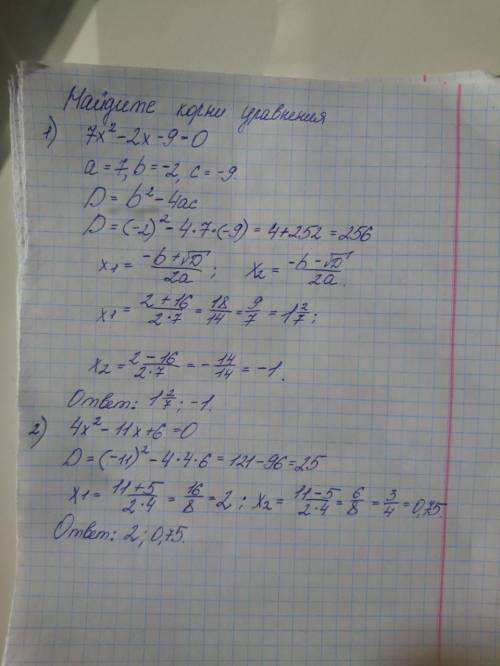 Найдите корни уравнения
1) 7x² - 2x - 9 = 0
a = 7, b = -2, c = -9.
D = b² - 4ac
D = (-2)² - 4·7·(-9) = 4 + 252 = 256
x₁ = (-b + √D)/2a ; x₂ = (-b - √D)/2a.
x₁ = (2 + 16)/(2·7) = 18/14 = 9/7 = 1 2/7 ;
x₂ = (2 - 16)/(2·7) = - 14/14 = -1.
Ответ: 1 2/7 ; -1.
2) 4x² - 11x + 6 = 0
D = (-11)² - 4·4·6 = 121 - 96 = 25
x₁ = (11 + 5)/(2·4) = 16/8 = 2 ; x₂ = (11 - 5)/(2·4) = 6/8 = 3/4 = 0,75.
Ответ: 2 ; 0,75.